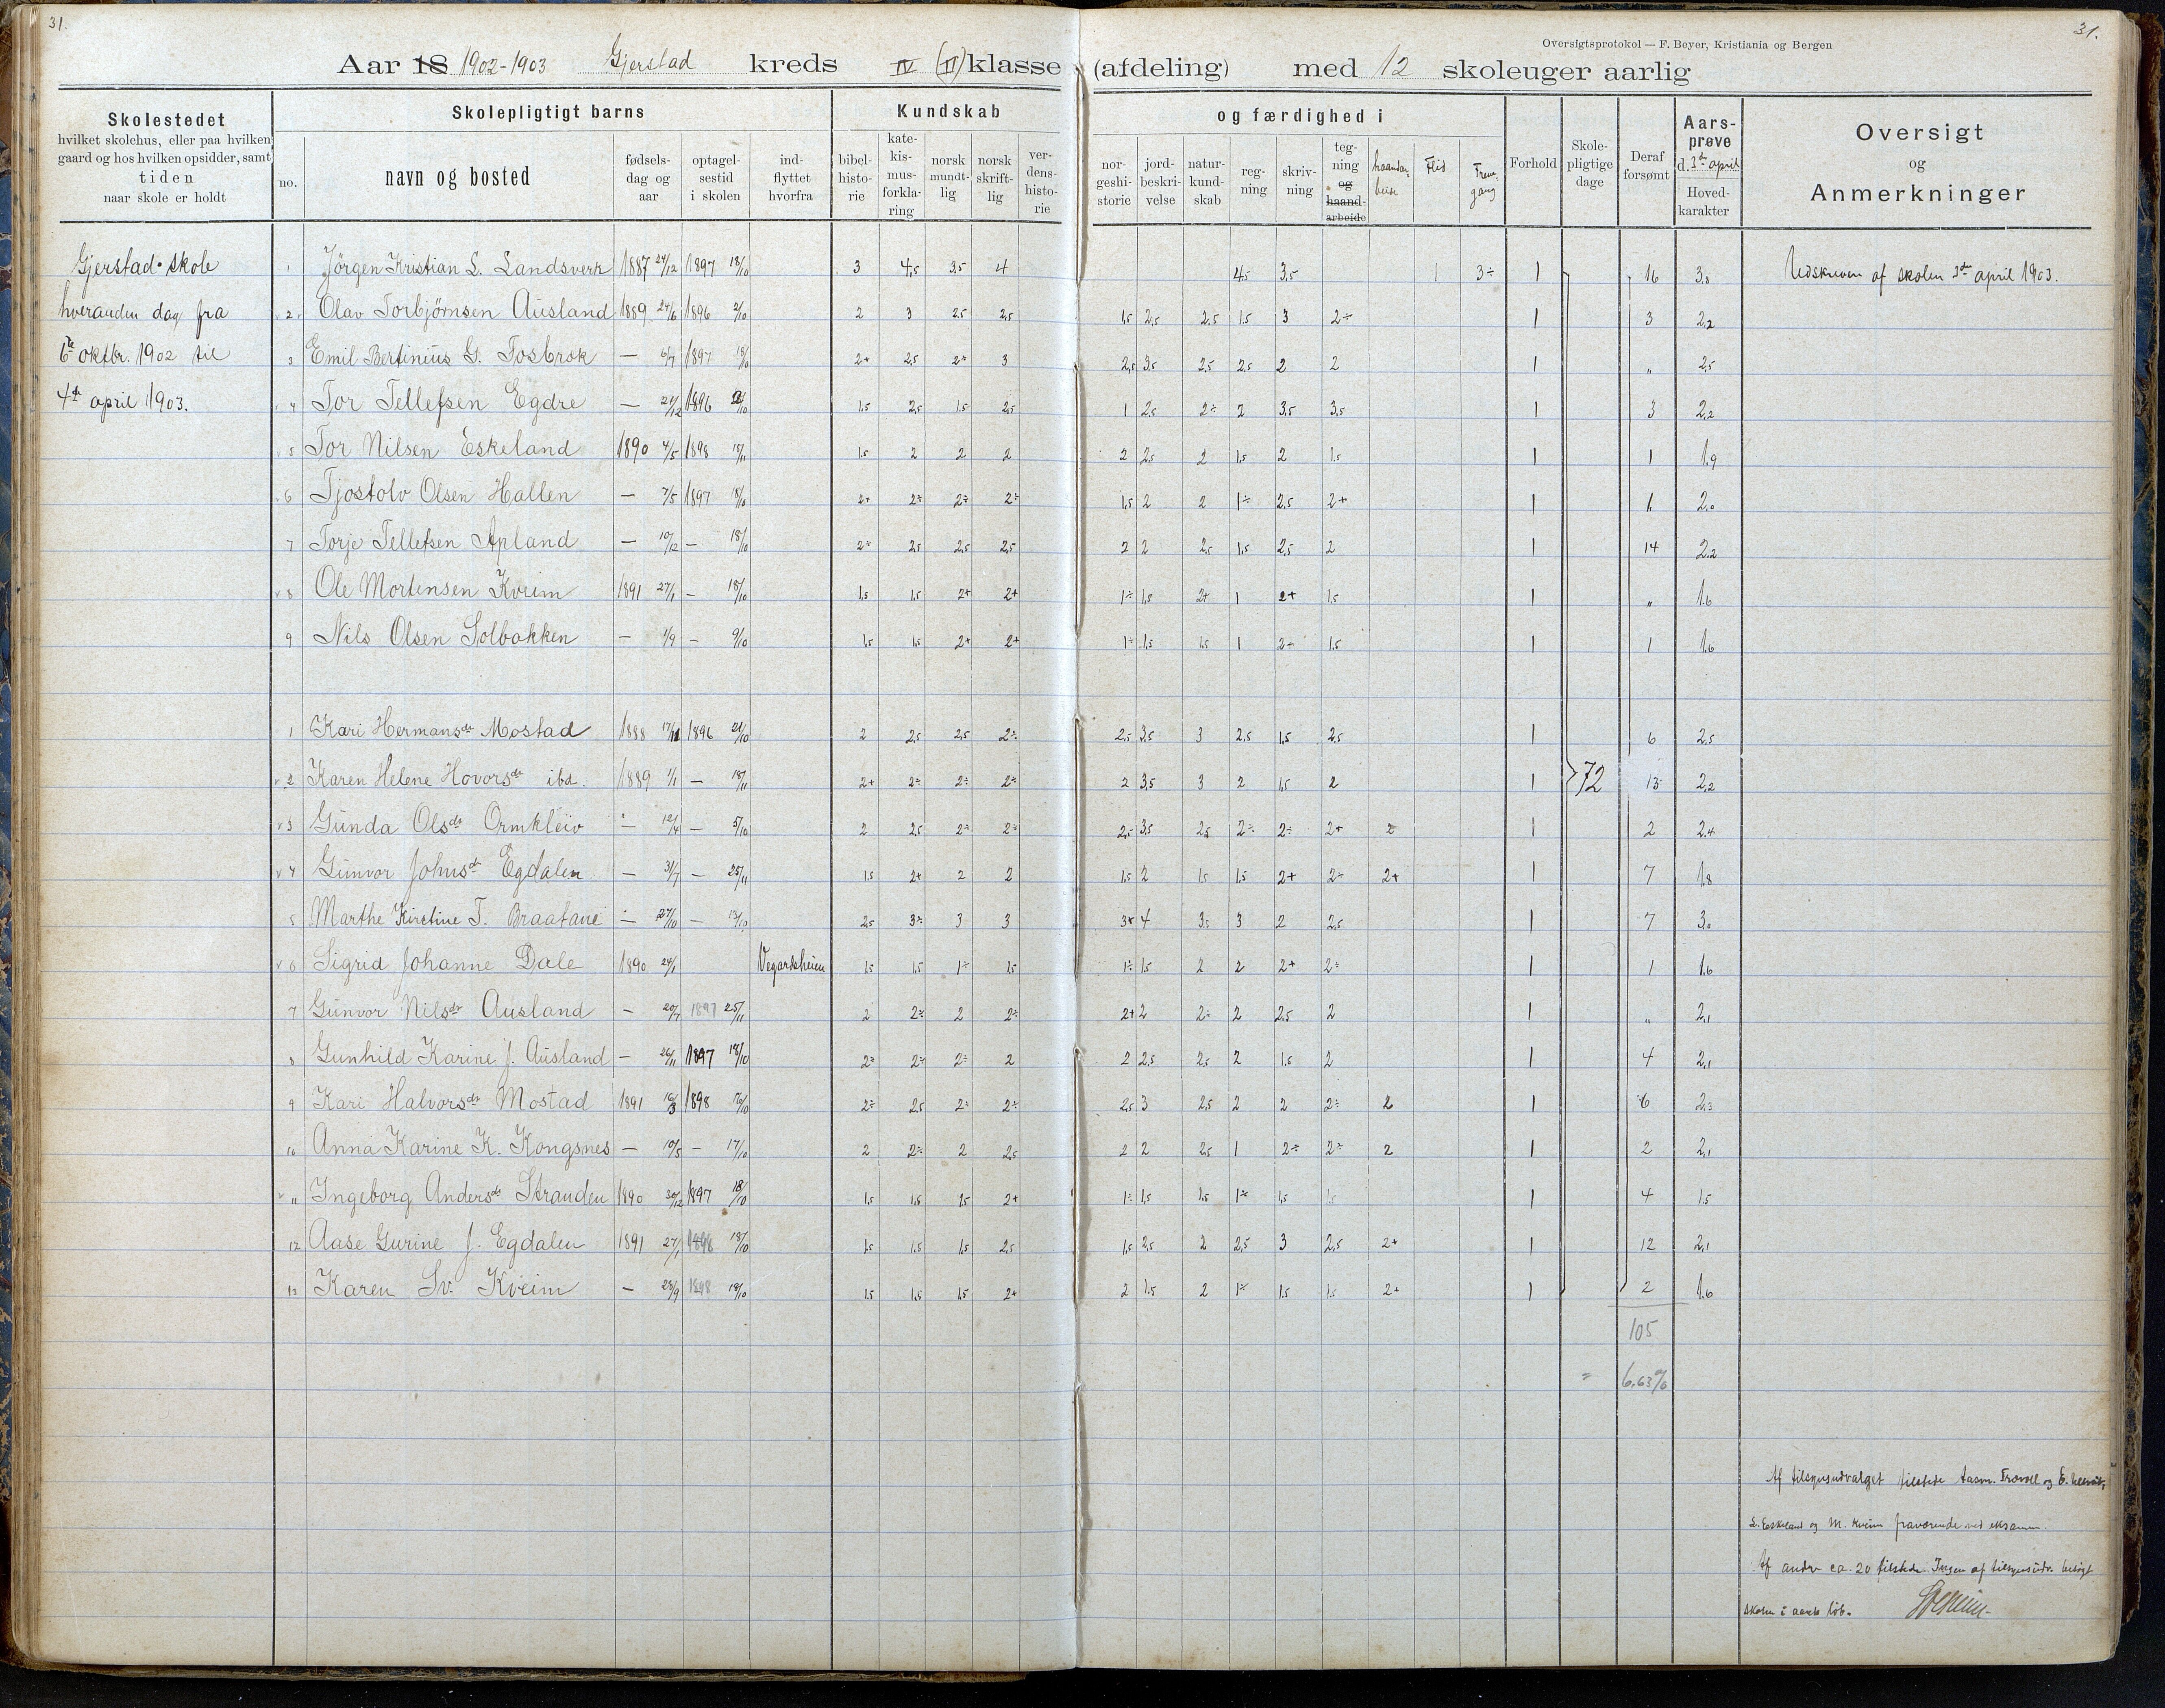 31.
31.
Oversigtsprotokol — F. Beyer, Kristiania og Bergen
Aar 18 1902-1903 Gjerstad kreds IV (II) klasse (afdeling) med 12 skoleuger aarlig
Skolestedet
hvilket skolehus, eller paa hvilken
gaard og hos hvilken opsidder, samt
tiden
naar skole er holdt
Skolepligtigt barns
no.
navn og bosted
fødsels-
dag og
aar
optagel-
sestid
i skolen
ind-
flyttet
hvorfra
Kundskab
bibel-
histo-
rie
kate-
kis-
mus-
forkla-
ring
norsk
mundt-
lig
norsk
skrift-
lig
ver-
dens-
histo-
rie
og færdighed i
nor-
geshi-
storie
jord-
beskri-
velse
natur-
kund-
skab
reg-
ning
skriv-
ning
teg-
ning
og
haand-
arbeide
Flid
Frem-
gang
Forhold
Skole-
pligtige
dage
Deraf
forsømt
Aars-
prøve
d. 3de april
Hoved-
karakter
Oversigt
og
Anmerkninger
Gjerstad skole
hveranden dag fra
6te oktbr. 1902 til
4de april 1903.
1 Jørgen Kristian S. Landsverk 1887 24/12 1897 18/10 3 4,5 3,5 4 4,5 3,5 1 3÷ 1 16 3,8 Udskreven af skolen 3de april 1903.
2 Olav Torbjørnsen Ausland 1889 24/6 1896 2/10 2 3 2,5 2,5 1,5 2,5 2,5 1,5 3 2÷ 1 3 2,2
3 Emil Bertinius G. Fosbrok — 6/7 1897 18/10 2+ 2,5 2÷ 3 2,5 3,5 2,5 2,5 2 2 1 „ 2,5
4 Tor Tellefsen Egdre — 21/12 1896 1,5 2,5 1,5 2,5 1 2,5 2÷ 2 3,5 3,5 1 3 2,2
5 Tor Nilsen Eskeland 1890 4/5 1898 15/11 1,5 2 2 2 2 2,5 2 1,5 2 1,5 1 1 1,9
6 Tjostolv Olsen Hallen — 7/5 1897 18/10 2+ 2÷ 2÷ 2÷ 1,5 2 2 1÷ 2,5 2+ 1 1 2,0
7 Torje Tellefsen Apland — 10/12 — 18/10 2÷ 2,5 2,5 2,5 2 2 2,5 1,5 2,5 2 1 14 2,2
8 Ole Mortensen Kveim 1891 27/1 — 18/10 1,5 1,5 2+ 2+ 1÷ 1,5 2+ 1 2+ 1,5 1 „ 1,6
9 Nils Olsen Solbakken — 1/9 — 9/10 1,5 1,5 2+ 2+ 1÷ 1,5 1,5 1 2+ 1,5 1 1 1,6
1 Kari Hermansdr Mostad 1888 17/11 1896 21/10 2 2,5 2,5 2÷ 2,5 3,5 3 2,5 1,5 2,5 1 6 2,5
2 Karen Helene Hovorsdr ibd. 1889 1/1 — 18/11 2+ 2÷ 2÷ 2÷ 2 3,5 3 2 1,5 2 1 72 13 2,2
3 Gunda Olsdr Ormkleiv — 12/4 — 5/10 2 2,5 2÷ 2÷ 2,5 3,5 2,5 2÷ 2÷ 2+ 2 1 2 2,4
4 Gunvor Johnsdr Egdalen — 31/7 — 25/11 1,5 2+ 2 2 1,5 2 1,5 1,5 2+ 2÷ 2+ 1 7 1,8
5 Marthe Kirstine T. Braatane — 27/10 — 13/10 2,5 3÷ 3 3 3+ 4 3,5 3 2 2,5 1 7 3,0
6 Sigrid Johanne Dale 1890 24/1 Vegardsheien 1,5 1,5 1÷ 1,5 1÷ 1,5 2 2 2+ 2÷ 1 1 1,6
7 Gunvor Nilsdr Ausland — 20/7 1897 25/11 2 2÷ 2 2÷ 2+ 2 2÷ 2 2,5 2 1 „ 2,1
8 Gunhild Karine J. Ausland — 26/11 1897 18/10 2÷ 2÷ 2÷ 2 2 2,5 2,5 2 1,5 2 1 4 2,1
9 Kari Halvorsdr Mostad 1891 16/3 1898 2÷ 2,5 2÷ 2÷ 2,5 3 2,5 2 2 2÷ 2 1 6 2,3
10 Anna Karine K. Kongsnes — 10/5 — 17/10 2 2÷ 2 2,5 2 2 2,5 1 2÷ 2÷ 2 1 2 2,1
11 Ingeborg Andersdr Stranden 1890 30/12 1897 18/10 1,5 1,5 1,5 2+ 1÷ 1,5 1,5 1÷ 1,5 1,5 1 4 1,5
12 Aase Gurine J. Egdalen 1891 27/1 1898 18/10 1,5 1,5 1,5 2,5 1,5 2,5 2 2,5 3 2,5 2+ 1 12 2,1
13 Karen Sv. Kveim — 28/9 1898 18/10 1,5 1,5 1,5 2+ 2 1,5 2 1÷ 1,5 1,5 2+ 1 2 1,6
105
= 6,63%
Af tilsynsudvalget tilstede Aasm. Trovall og E.
S. Eskeland og M. Kveim fraværende ved eksamen.
Af andre ca. 20 tilstede. Ingen af tilsynsudv. besøgt
skolen i aarets løb.